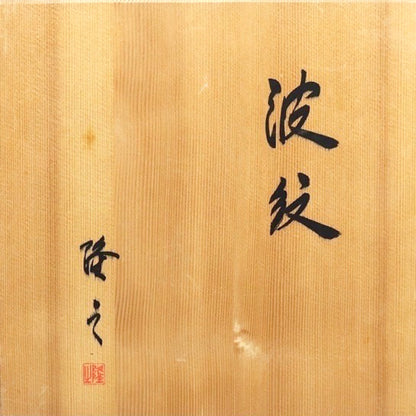 波紋
隆之